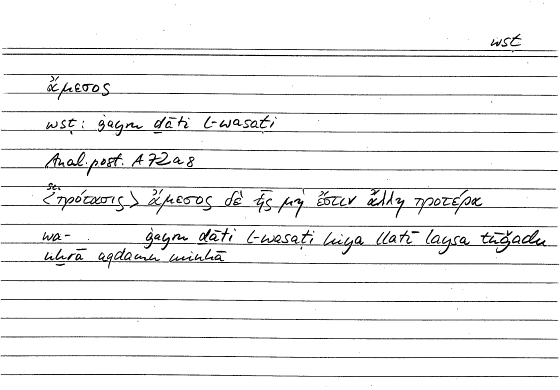 wsṭ
ἄμεσος
wsṭ: ġayru ḏāti l-wasaṭi
Anal. post. A 72 a 8
sc.
<πρότασις> ἄμεσος δὲ ἧς μή ἔστιν ἄλλη προτέρα
wa- ġayru ḏāti l-wasaṭi hiya llatī laysa tūǧadu
uḫrā aqdamu minhā